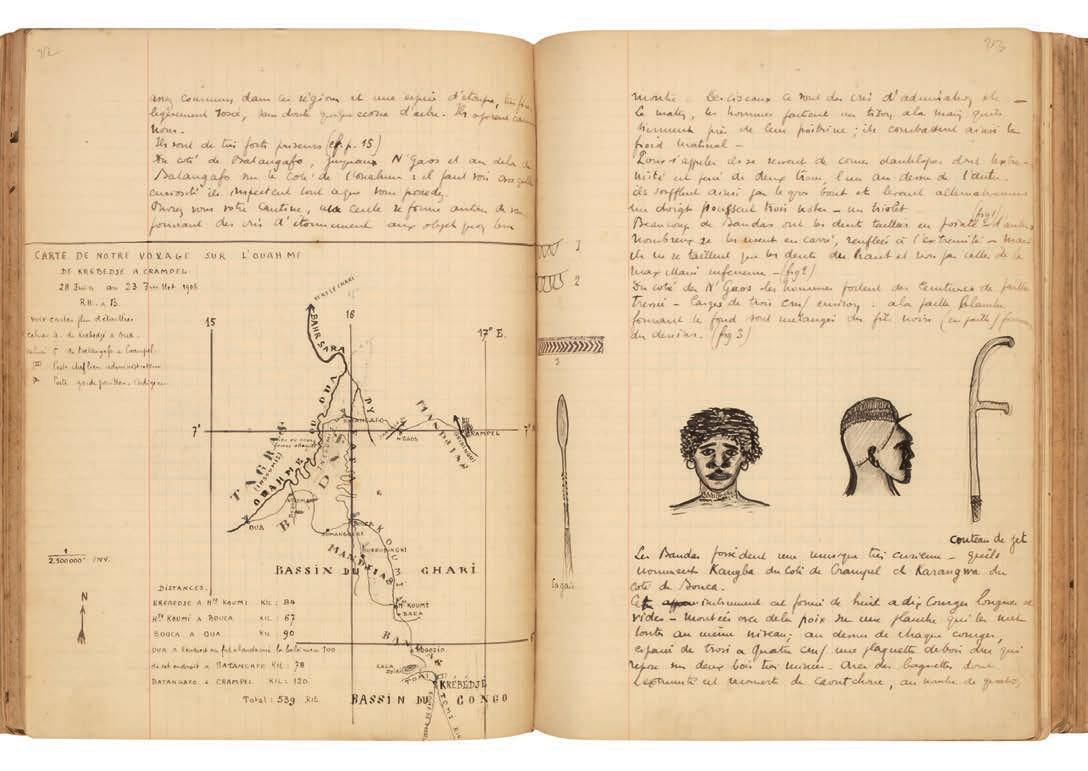 assez communs dans ces régions et une espèce d'étoupe, très fine
légèrement rosée, sans doute quelque écorce d'arbre. Ils
nous.
Ils sont de très forts priseurs (cf. p. 15)
Du côté de Batangafo, N'Gaos et au delà de
Batangafo sur le côté de l'Ouahm : il faut voir avec quelle
curiosité ils inspectent tout ce que vous possédez.
Ouvrez vous votre cantine, un cercle se forme autour de vous
poussant des cris d'étonnement aux objets que l'on
CARTE DE NOTRE VOYAGE SUR L'OUAHME
DE KRÉBEDJÉ A CRAMPEL
28 Juin au 23 Juillet 1906
R.H. a B.
voir cartes plus détaillées
cahier de Krébedjé a Oua.
cahier de Batangafo a Crampel.
Poste
Poste
15
16
17° E.
BAHR SARA
7°
7°
OUAHME OU OUA
TAGBAS
BATANGAFO
N'GAOS
MANDJIAS
CRAMPEL
OUA
BOUCA
MANDJIAS
BASSIN DU CHARI
1
2.500000 ENV.
N
S
DISTANCES.
KREBEDJE A Hte KOUMI KIL: 84
Hte KOUMI A BOUCA. KIL: 67
BOUCA A OUA KIL: 90
OUA a l'endroit ou fut abandonné la baleinière 100
de cet endroit a BATANGAFO KIL: 78
BATANGAFO a CRAMPEL KIL: 120
Total: 539 KIL
Hte KOUMI
KRÉBÉDJÉ
TOMI
BASSIN DU CONGO
montre. Les ciseaux ce sont des cris d'admiration etc —
Le matin, les hommes portent un tison à la main qu'ils
tiennent près de leur poitrine ; ils combattent ainsi le
froid matinal —
Pour s'appeler ils se servent de cornes d'antilopes dont l'extré-
mité est percée de deux trous l'un au dessus de l'autre.
ils soufflent ainsi par le gros bout et levant alternativement
un doigt poussent trois notes — un triolet —
(fig 1)
Beaucoup de Bandas ont les dents taillées en pointe — d'autres
nombreux se les usent en carré, renflées à l'extrémité — mais
ils ne se taillent que les dents du haut et non pas celles de la
maxillaire inférieure — (fig 2)
Du côté des N'Gaos les hommes portent des ceintures de paille
tressée — larges de trois cm/ environ : à la paille blanche
formant le fond sont mélangés des fils noirs (en paille) formant
des dessins. (fig 3)
1
2
3
Sagaie
couteau de jet
Les Bandas possèdent une musique très curieuse — qu'ils
nomment Kangba du côté de Crampel et Karangwa du
côté de Bouca.
Cet instrument est formé de huit à dix courges longues et
vides — montées avec de la poix sur une planche qui les met
toutes au même niveau ; au dessus de chaque courge,
espacée de trois à quatre cm/ une plaquette de bois dur qui
repose sur deux bois très minces. Avec des baguettes dont
l'extrémité est recouverte de caoutchouc, au nombre de quatre,